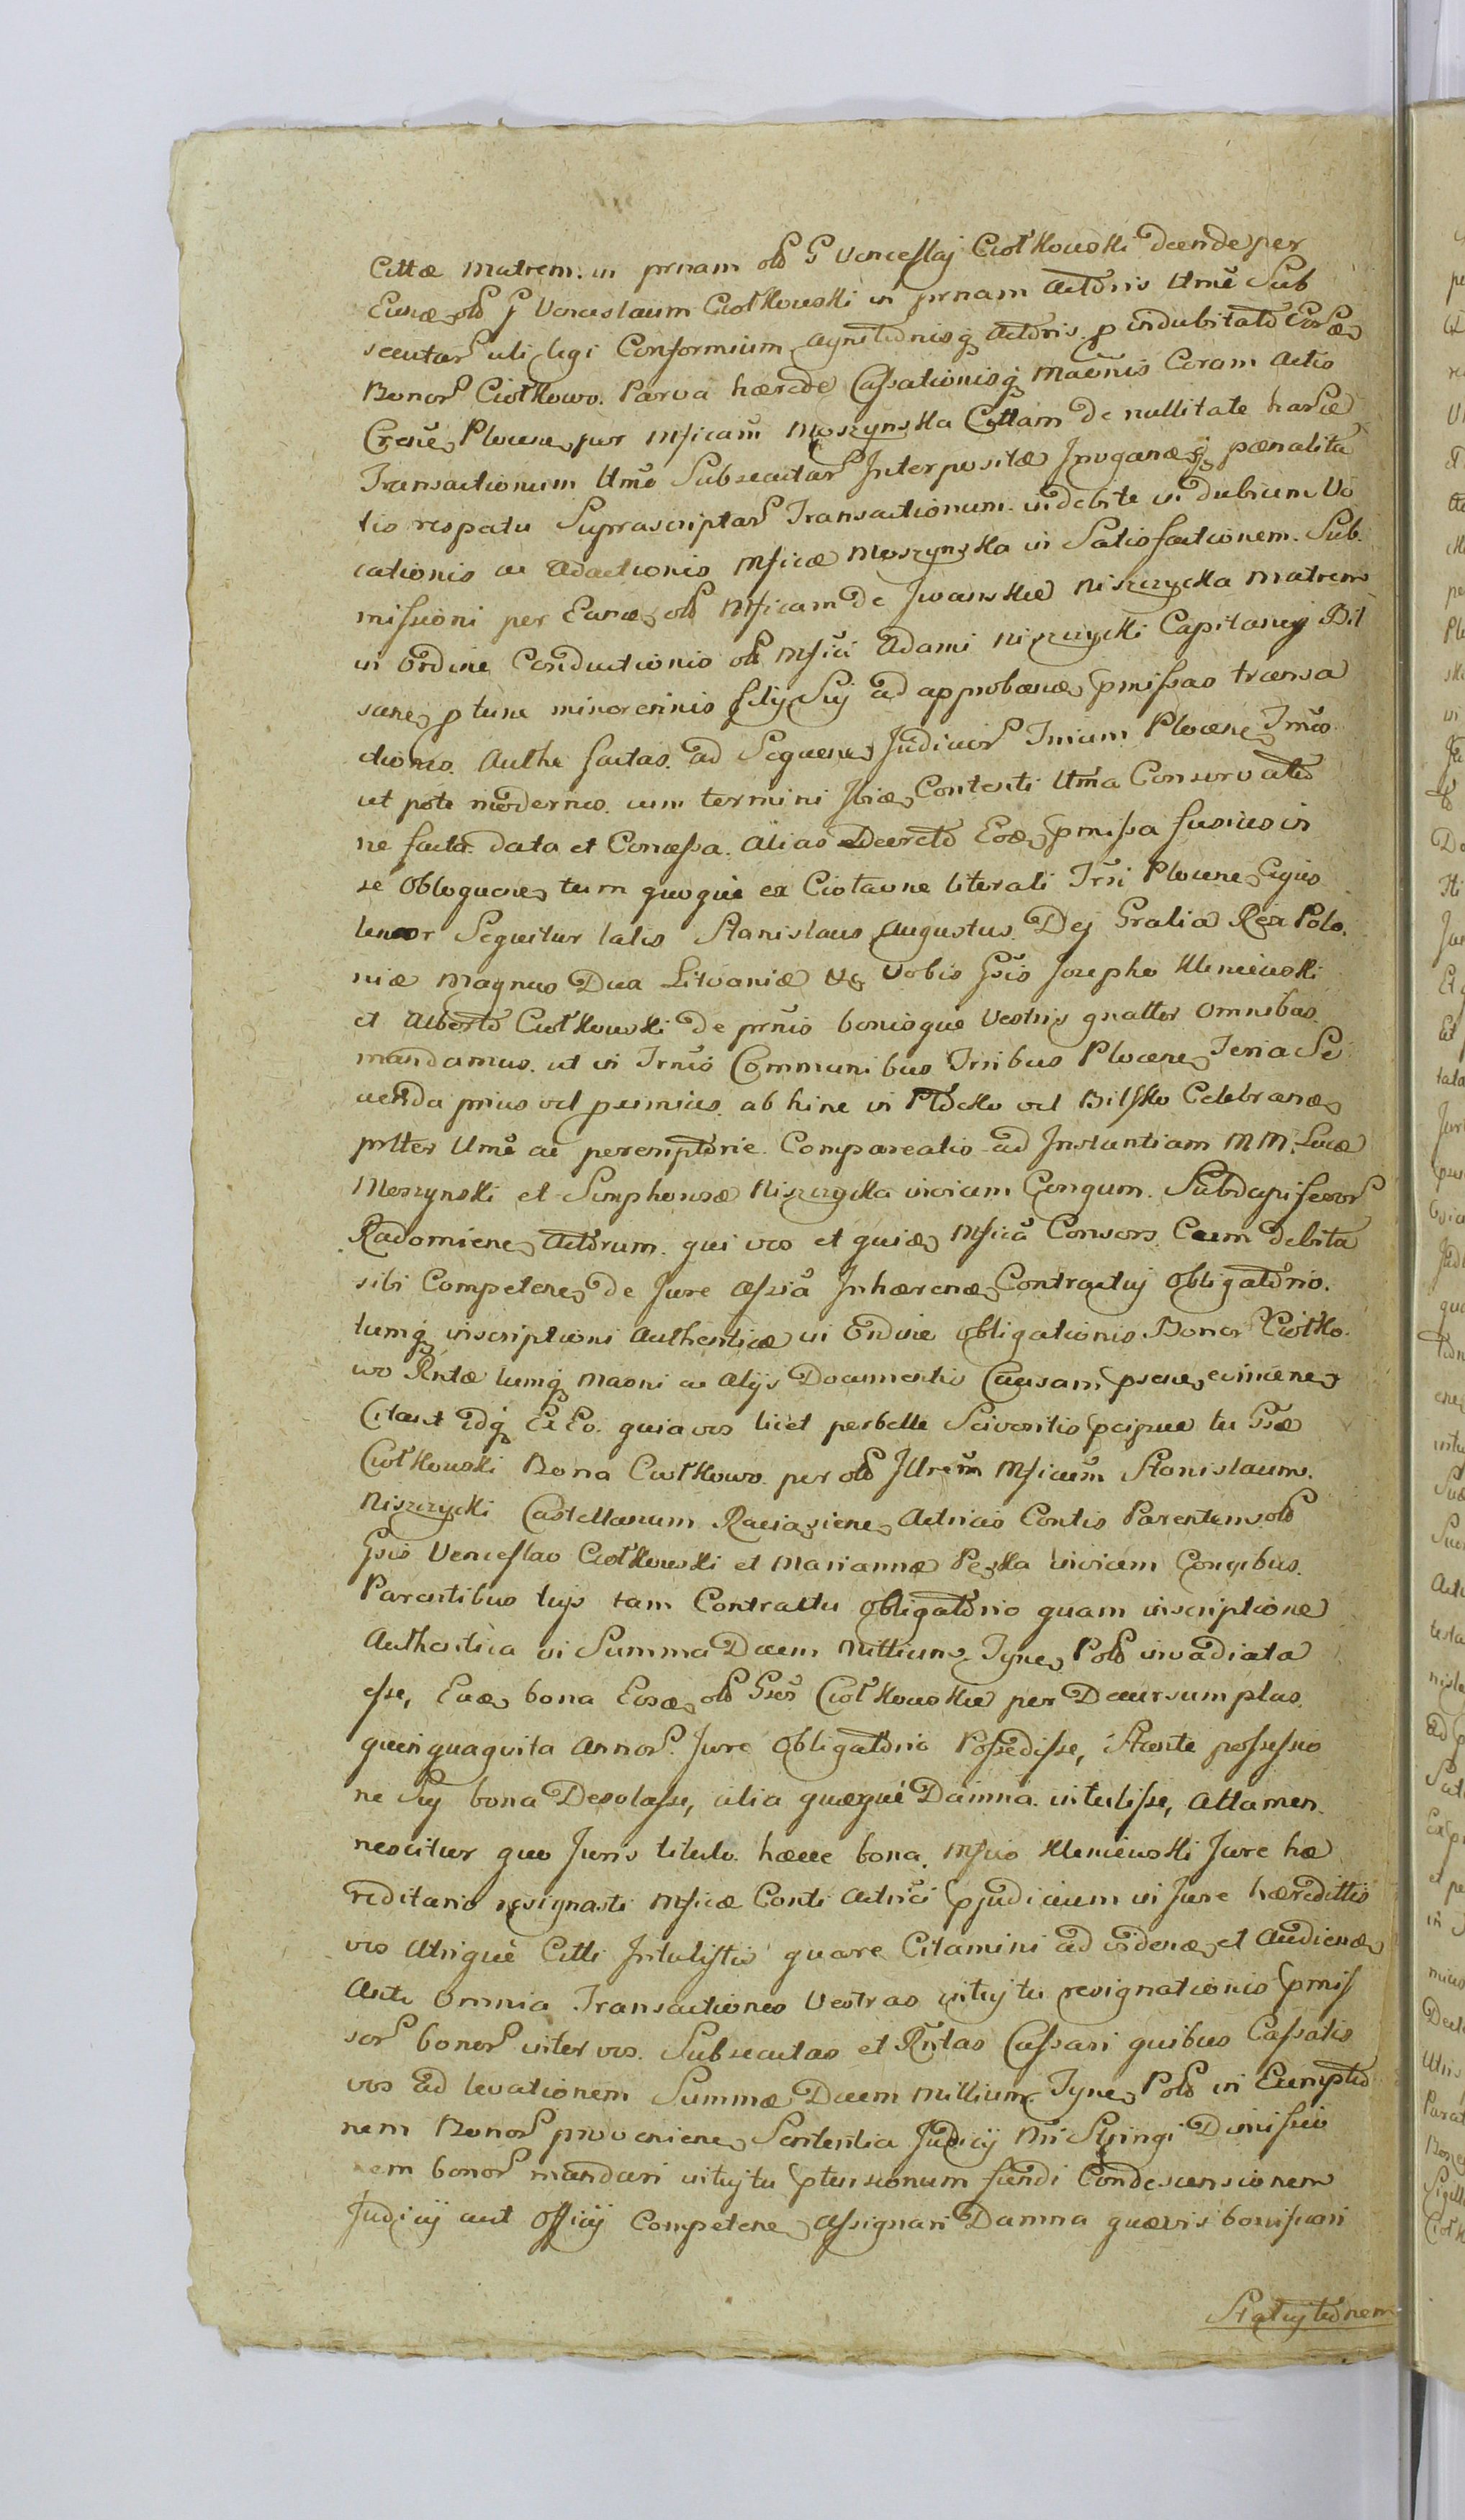 Cittæ Matrem. in prnam olo G Venceslaj Ciołkowski deende per
Eunde olo G Venceslaum Ciołkowski in prnam Actoris Ultme Sub
secutar uti legi Conformium Agnitionisq Actoris p indubitato Eorde
Bonor Ciołkowo. Parva hærede Cassationisq Maonis Coram Actis
Crens Plocens per Mficam Moszynska Cttam de nullitate harce
Transactionum Ultme Subsecutar Interpositæ Irroganæq pænalita
tis respectu Suprascriptar Transactionum. indebite in dubium Vo
cationis ac Adactionis Mficæ Moszynska in Satisfactionem. Sub.
missioni per Eande olo Mficam de Iwanskie Niszczycka Matrem
in Ordine Conductionis olo Mfici Adami Niszczycki Capitanej Bil
scens p tunc minorennis filij Sui ad approbande pmissas transa
ctiones. Authe factas. ad Sequens Judicior Trium Plocens Trmo
ut pote modernos. cum termini Ibide Contenti Ultma Conservatio
ne facta. data et Concessa. Alias Decreto Eode pmissa fusius in
se obloquens tum quoque ex Citaone literali Trri Plocens Cujus
tenor Sequitur talis Stanislaus Augustus. Dei Gratia Rex Polo.
niæ Magnus Dux Litvaniæ &c Vobis Gsis Josepho Kleniewski
et Alberto Ciołkowski de prnis bonisque Vestris gnalter omnibus.
mandamus. ut in Trmis Communibus Trribus Plocens Feria Se
cunda prius vel proximius. ab hinc in Płocko vel Bilsko Celebrande
prlter Ultme ac peremptorie. Compareatis ad Instantiam M M. Lucæ
Moszynski et Simphorosæ Niszczycka invicem Conjgum. Subdapiferor
Radomiens Actorum. qui vos et quide Mfica Consors. Cum debita
sibi Competens de Jure Assia Inhærende Contractuj Obligatorio.
tumq inscriptioni Authenticæ in Ordine Obligationis Bonor Ciołko.
wo Rntæ tumq Maoni ac Alijs Documentis Causam psens evincens
Citant Idq Ex Eo. quia vos licet perbelle Sciveritis pcipue tu Gse
Ciołkowski Bona Ciołkowo. per olo Illrem Mficum Stanislaum.
Niszczycki Castellanum Raciazens Actricis Contis Parentem olo
Gsis Venceslao Ciołkowski et Mariannæ Peska invicem Conjgibus.
Parentibus tujs tam Contractu Obligatorio quam inscriptione
Authentica in Summa Decem Millium Tynf Polo invadiata
esse, Eade bona Eosde olo Gsos Ciołkowskie per Decursum plus.
quinquaginta Annor. Jure Obligatorio Possedisse, Stante possessio
ne Suj bona Desolasse, alia quæque Damna. intulisse, Attamen.
nescitur quo Juris titulo. hæcce bona. Mfico Kleniewski Jure hæ
reditario resignasti Mficæ Conti Actrici pjudicium in Jure hæredittis
vos Utrique Citti Intulistis quare Citamini ad vidende et Audiende
Ante Omnia Transactiones Vestras intujtu resignationis pmis
sor bonor inter vos. Subsecutas et Rntas Cassari quibus Cassatis
vos ad levationem Summæ Decem Millium Tynf Polo in Eempto
nem Bonor proveniens Sententia Judicij Nri Stringi Dimissio
nem bonor mandari intujtu ptensionum fundi Condescensionem
Judicij aut Officij Competens Assignari Damna quævis bonificari
Statujtionem